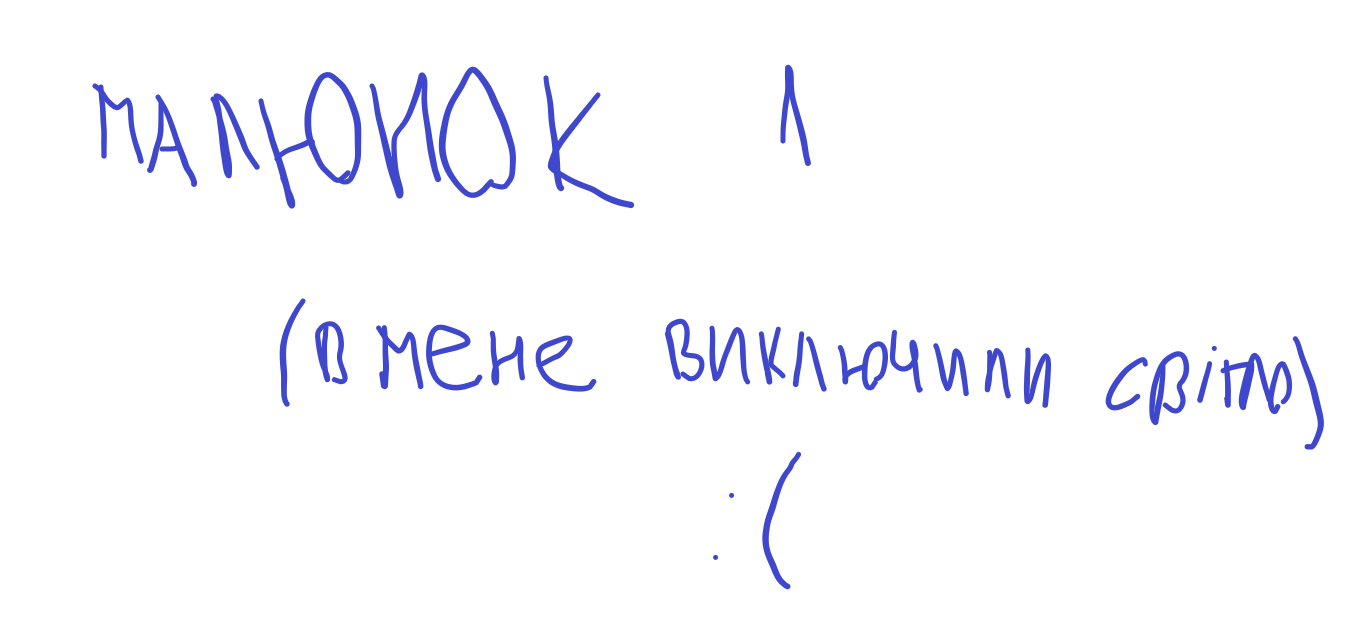 МАЛЮНОК 1
(в мене виключили світло)
:(